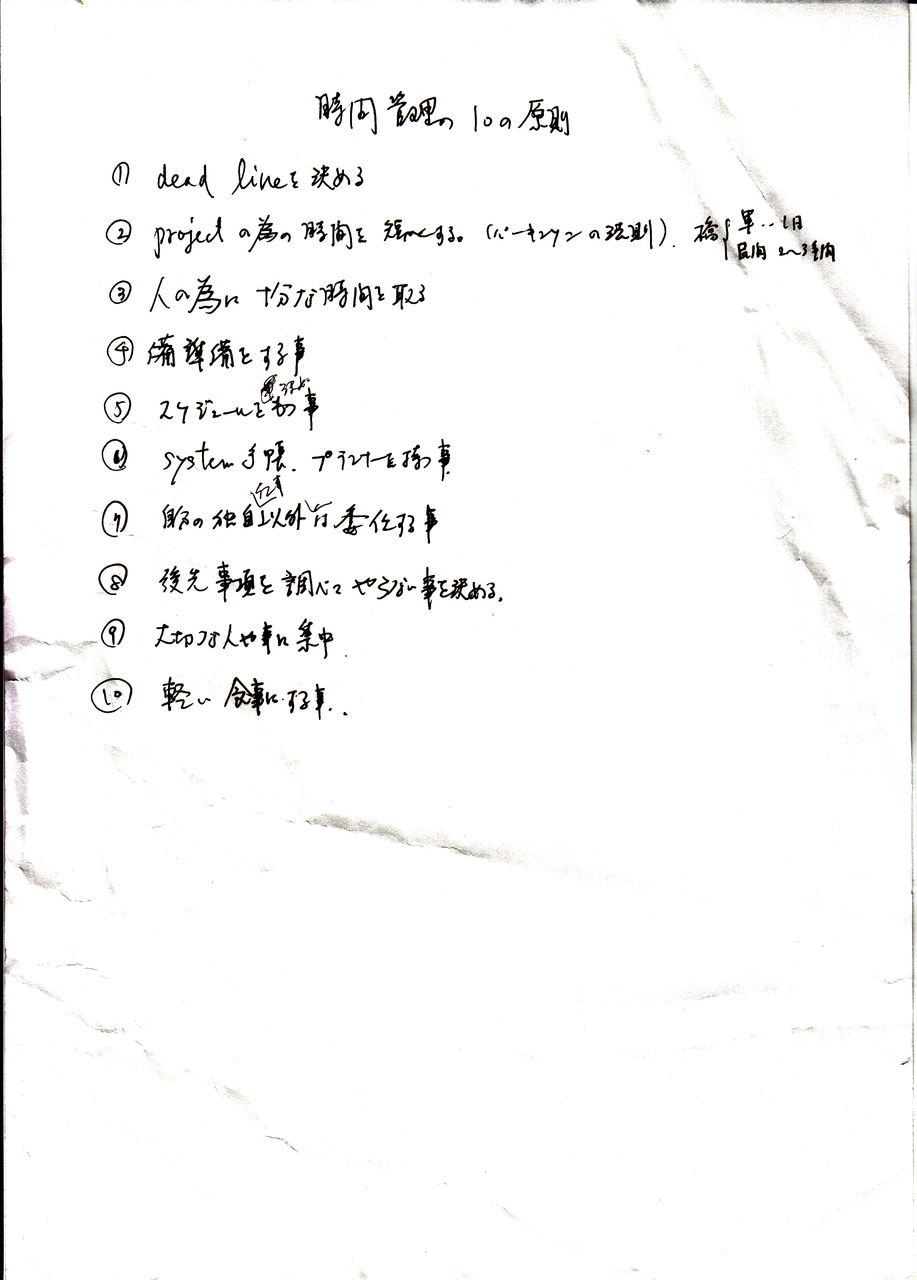 時間管理の10の原則
① dead lineを決める
② projectの為の時間を短めにする。(パーキンソンの法則). 橋{軍‥1日
民間 2〜3年間
③ 人の為に十分な時間を取る
④ 備準備をする事
⑤ スケジュールをもつ事
⑥ system手帳. プランナーを持つ事
⑦ 自分の独自 以外は委任する事
仕事
⑧ 後先事項を調べて やらない事を決める。
⑨ 大切な人や事に集中.
⑩ 軽い食事にする事.